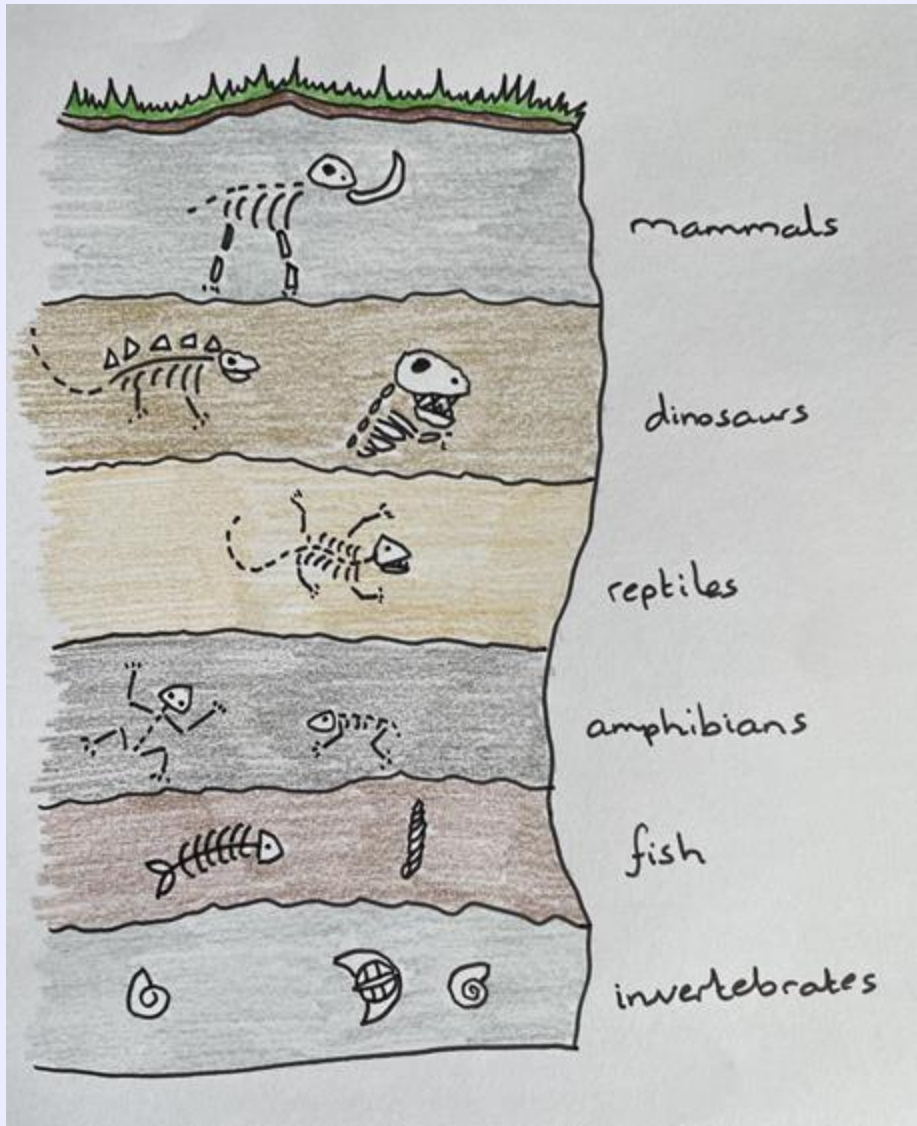 mammals
dinosaurs
reptiles
amphibians
fish
invertebrates